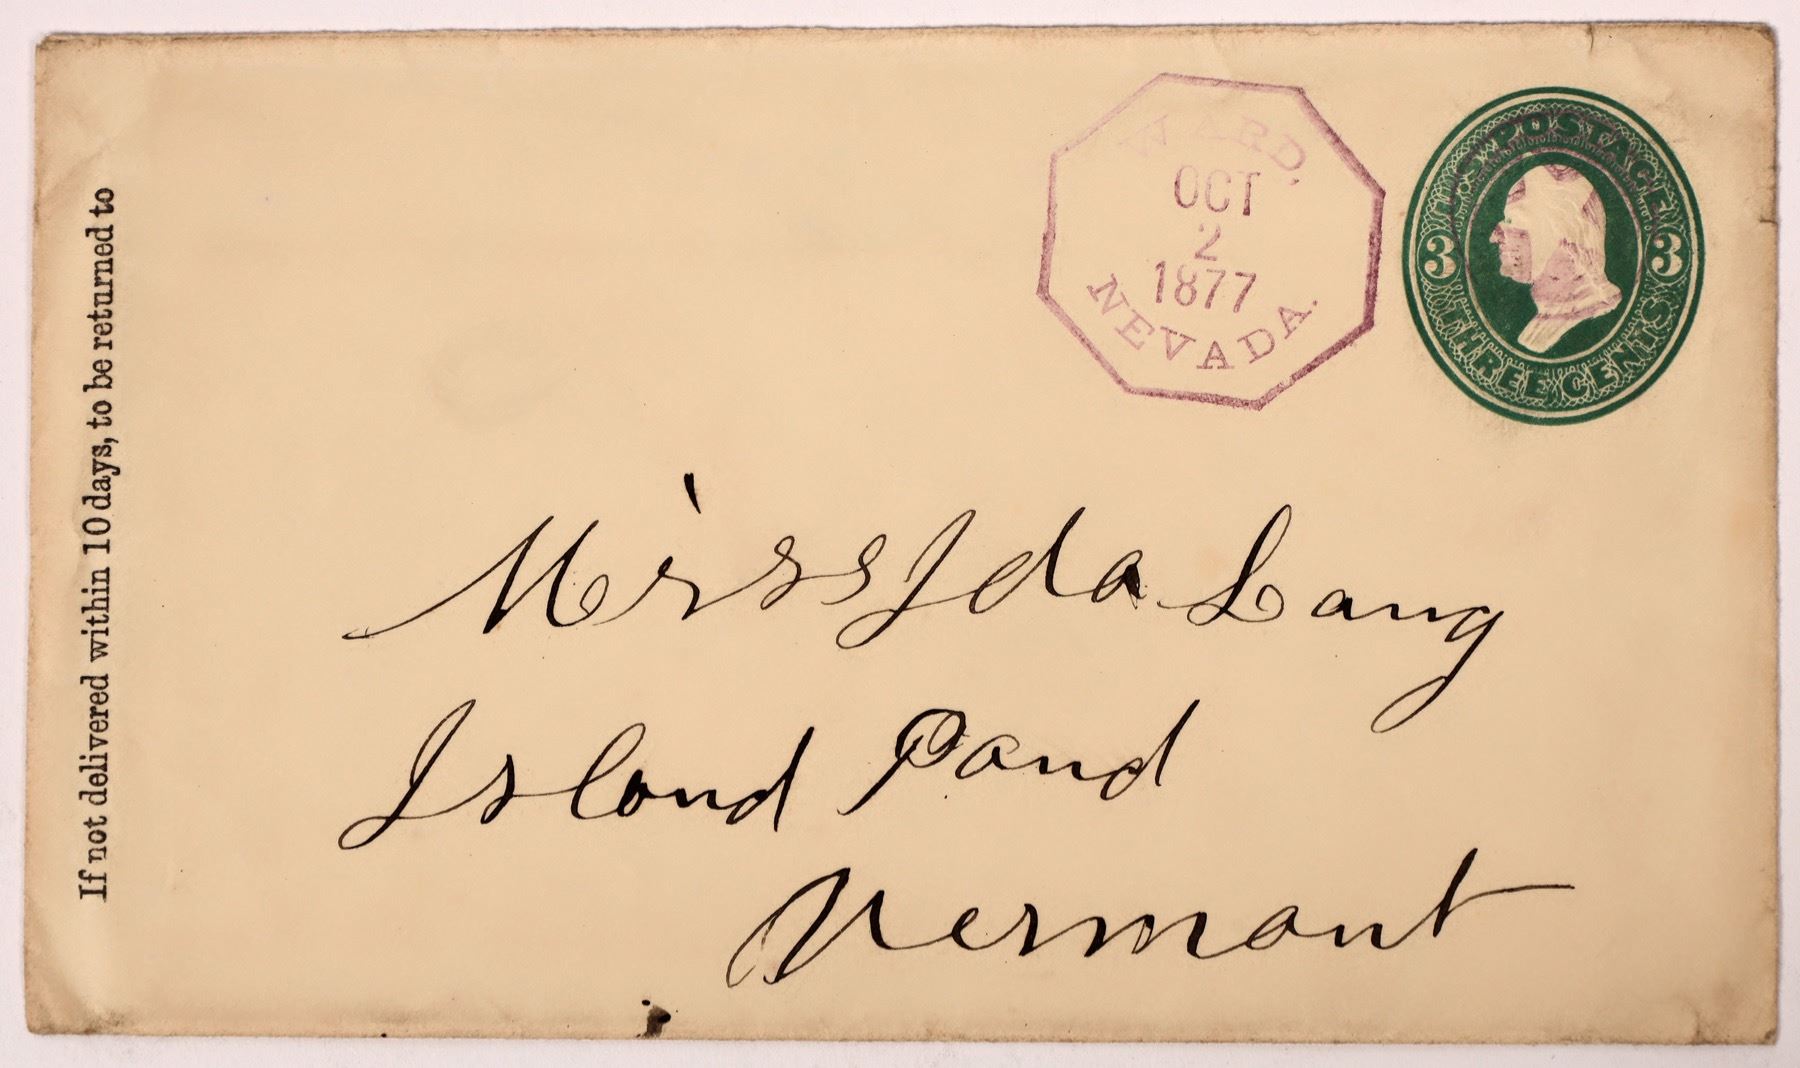 If not delivered within 10 days, to be returned to
WARD.
OCT
2
1877
NEVADA.
U.S. POSTAGE
3 3
THREE CENTS
Miss Ida Lang
Island Pond
Vermont